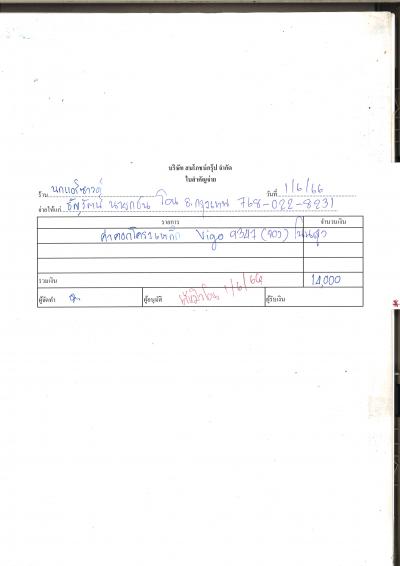 บริษัท สมโภชน์กรุ๊ป จำกัด
ใบสำคัญจ่าย
ร้าน นกแอร์ซาวด์ วันที่ 1/6/66
จ่ายให้แก่ ธัญรัตน์ โอน ธ.กรุงเทพ 768-022-8231
รายการ จำนวนเงิน
ค่าคอกโครงเหล็ก Vigo 9347 (ขาว)
รวมเงิน 14,000
ผู้จัดทำ ผู้อนุมัติ 1/6/66 ผู้รับเงิน